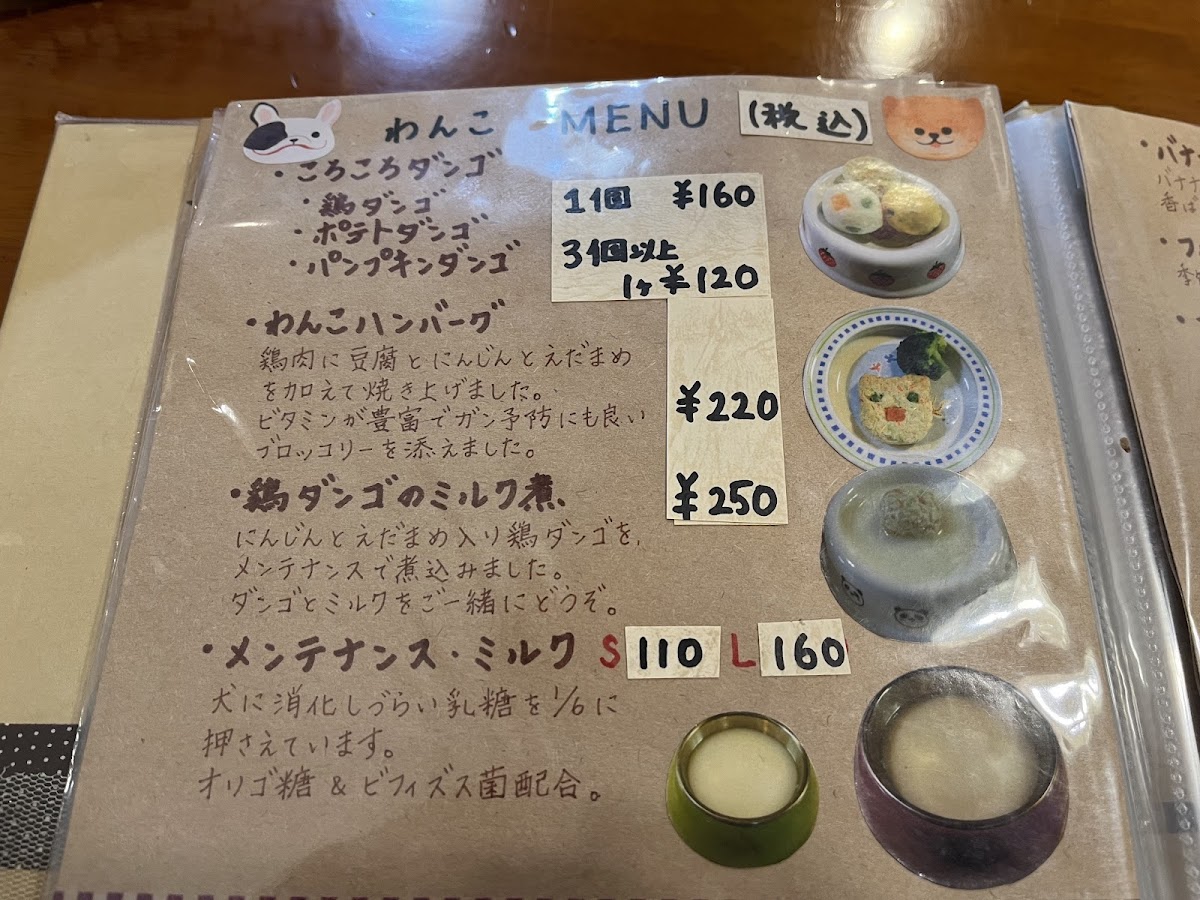 わんこ MENU (税込)
・ころころダンゴ
・鶏ダンゴ 1個 ¥160
・ポテトダンゴ
・パンプキンダンゴ 3個以上
1ヶ¥120
・わんこハンバーグ
鶏肉に豆腐とにんじんとえだまめ
を加えて焼き上げました。
ビタミンが豊富でガン予防にも良い ¥220
ブロッコリーを添えました。
・鶏ダンゴのミルク煮 ¥250
にんじんとえだまめ入り鶏ダンゴを、
メンテナンスで煮込みました。
ダンゴとミルクをご一緒にどうぞ。
・メンテナンス・ミルク S 110 L 160
犬に消化しづらい乳糖を1/6に
押さえています。
オリゴ糖 & ビフィズス菌配合。
・バナ
バナナ
香は